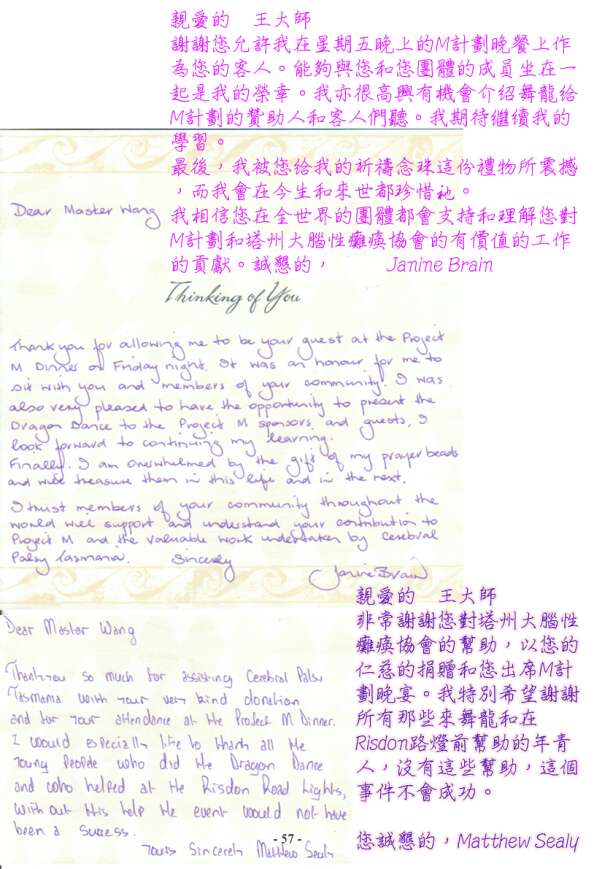 親愛的　王大師
謝謝您允許我在星期五晚上的M計劃晚餐上作
為您的客人。能夠與您和您團體的成員坐在一
起是我的榮幸。我亦很高興有機會介紹舞龍給
M計劃的贊助人和客人們聽。我期待繼續我的
學習。
最後，我被您給我的祈禱念珠這份禮物所震撼
，而我會在今生和來世都珍惜祂。
我相信您在全世界的團體都會支持和理解您對
M計劃和塔州大腦性癱瘓協會的有價值的工作
的貢獻。誠懇的，　　Janine Brain
Dear Master Wang
Thinking of You
Thank you for allowing me to be your guest at the Project
M Dinner on Friday night. It was an honour for me to
sit with you and members of your community. I was
also very pleased to have the opportunity to present the
Dragon Dance to the Project M sponsors and guests. I
look forward to continuing my learning.
Finally, I am overwhelmed by the gift of my prayer beads
and will treasure them in this life and in the next.
I trust members of your community throughout the
world will support and understand your contribution to
Project M and the valuable work undertaken by Cerebral
Palsy Tasmania. Sincerely
Janine Brain
Dear Master Wang
Thankyou so much for assisting Cerebral Palsy
Tasmania with your very kind donation
and for your attendance at the Project M Dinner.
I would especially like to thank all the
young people who did the Dragon Dance
and who helped at the Risdon Road Lights,
without this help the event would not have
been a success.
Yours Sincerely Matthew Sealy
親愛的　王大師
非常謝謝您對塔州大腦性
癱瘓協會的幫助，以您的
仁慈的捐贈和您出席M計
劃晚宴。我特別希望謝謝
所有那些來舞龍和在
Risdon路燈前幫助的年青
人，沒有這些幫助，這個
事件不會成功。
您誠懇的，Matthew Sealy
- 57 -